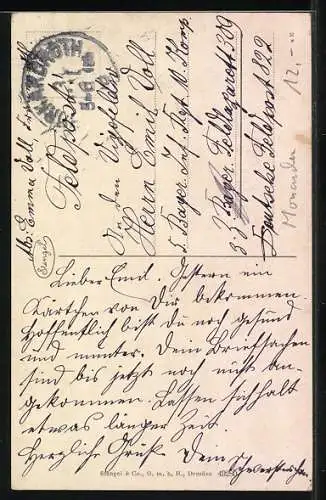 Feldpost!
Ab: Emma Voll,
An den Vizefeldw.
Herrn Emil Voll
5. Bayer. Inf. Ret. M. Komp.
Bayer. Feldlazarett
Deutsche Feldpost 822
12.-
Stengel
Lieber Emil. Gestern ein
Kärtchen von Dir bekommen.
Hoffentlich bist du noch gesund
und munter. Dein Briefsachen
sind bis jetzt noch nicht an-
gekommen. Lassen sich halt
etwas länger Zeit.
Herzliche Grüße Dein
Stengel & Co., G. m. b. H., Dresden